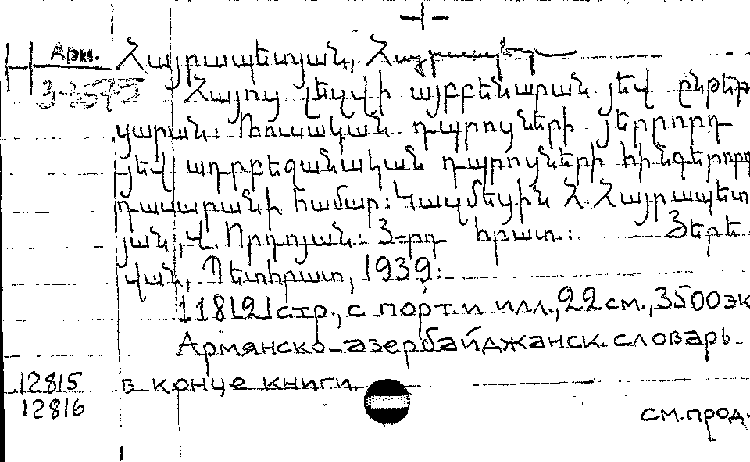 Арм. Հայրապետյան, Հայրապետ
3-2575 Հայոց լեզվի այբբենարան յեվ ընթեր
ցարան: Ռուսական դպրոցների յերրորդ
յեվ ադրբեջանական դպրոցների հինգերորդ
դասարանի համար: Կազմեցին Հ. Հայրապետ
յան, Վ. Որդոյան: 3-րդ հրատ: Յերե
վան, Պետհրատ, 1939:
118[2] стр., с порт. и илл., 22 см., 3500 эк
Армянско-азербайджанск. словарь
12815 в конце книги
12816
см. прод.